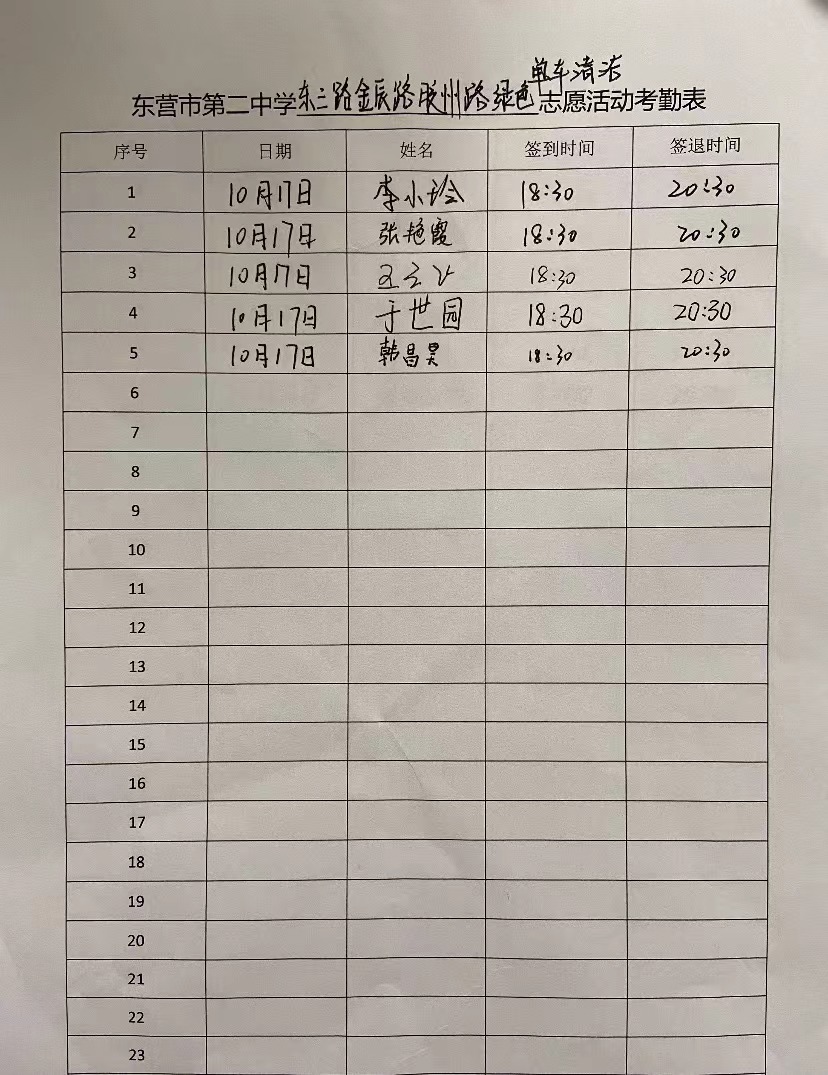 单车清洁
东营市第二中学东三路金辰路胶州路绿色志愿活动考勤表
序号 日期 姓名 签到时间 签退时间
1 10月17日 李小玲 18:30 20:30
2 10月17日 张艳霞 18:30 20:30
3 10月17日 18:30 20:30
4 10月17日 于世园 18:30 20:30
5 10月17日 韩昌昊 18:30 20:30
6
7
8
9
10
11
12
13
14
15
16
17
18
19
20
21
22
23